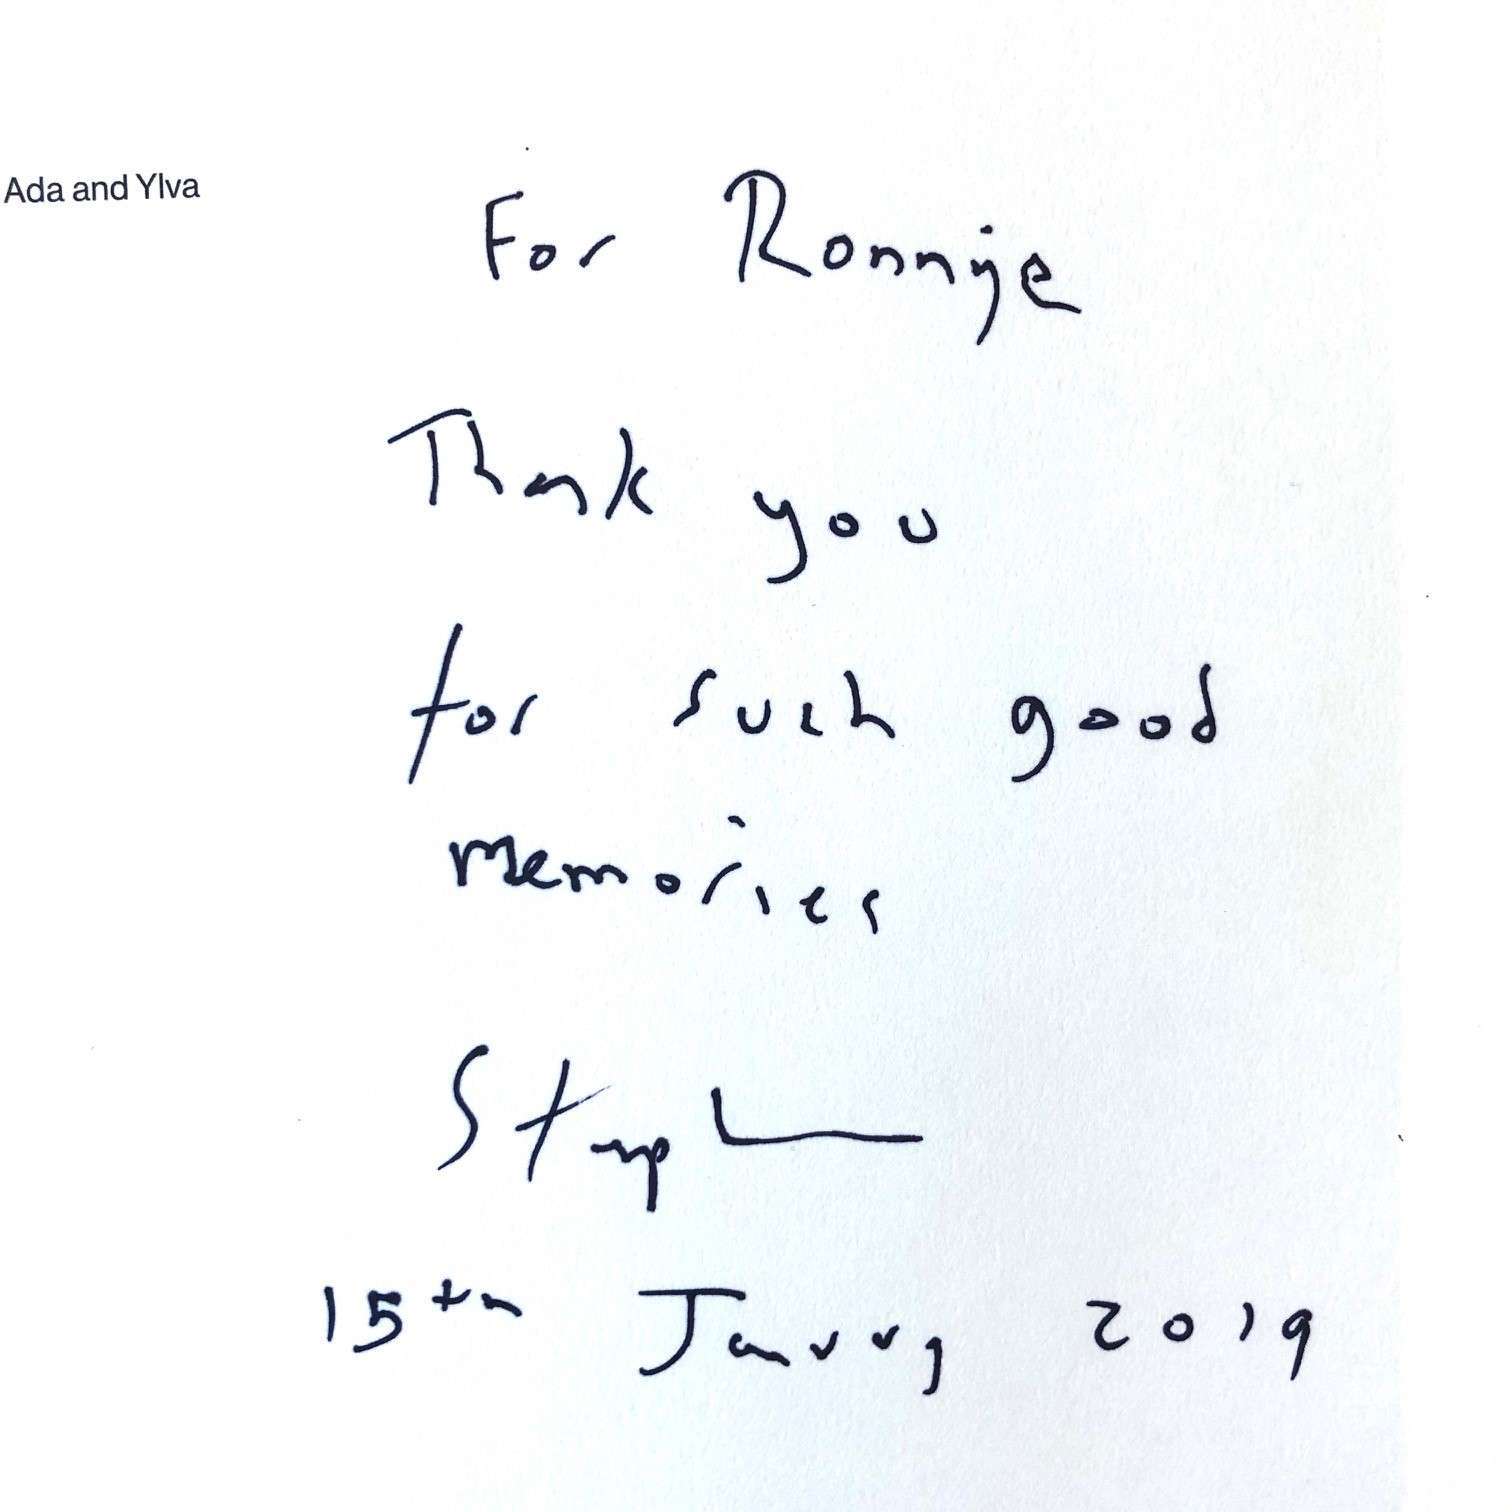 Ada and Ylva
For Ronnye
Thank you
for such good
memories
Stephen
15th January 2019